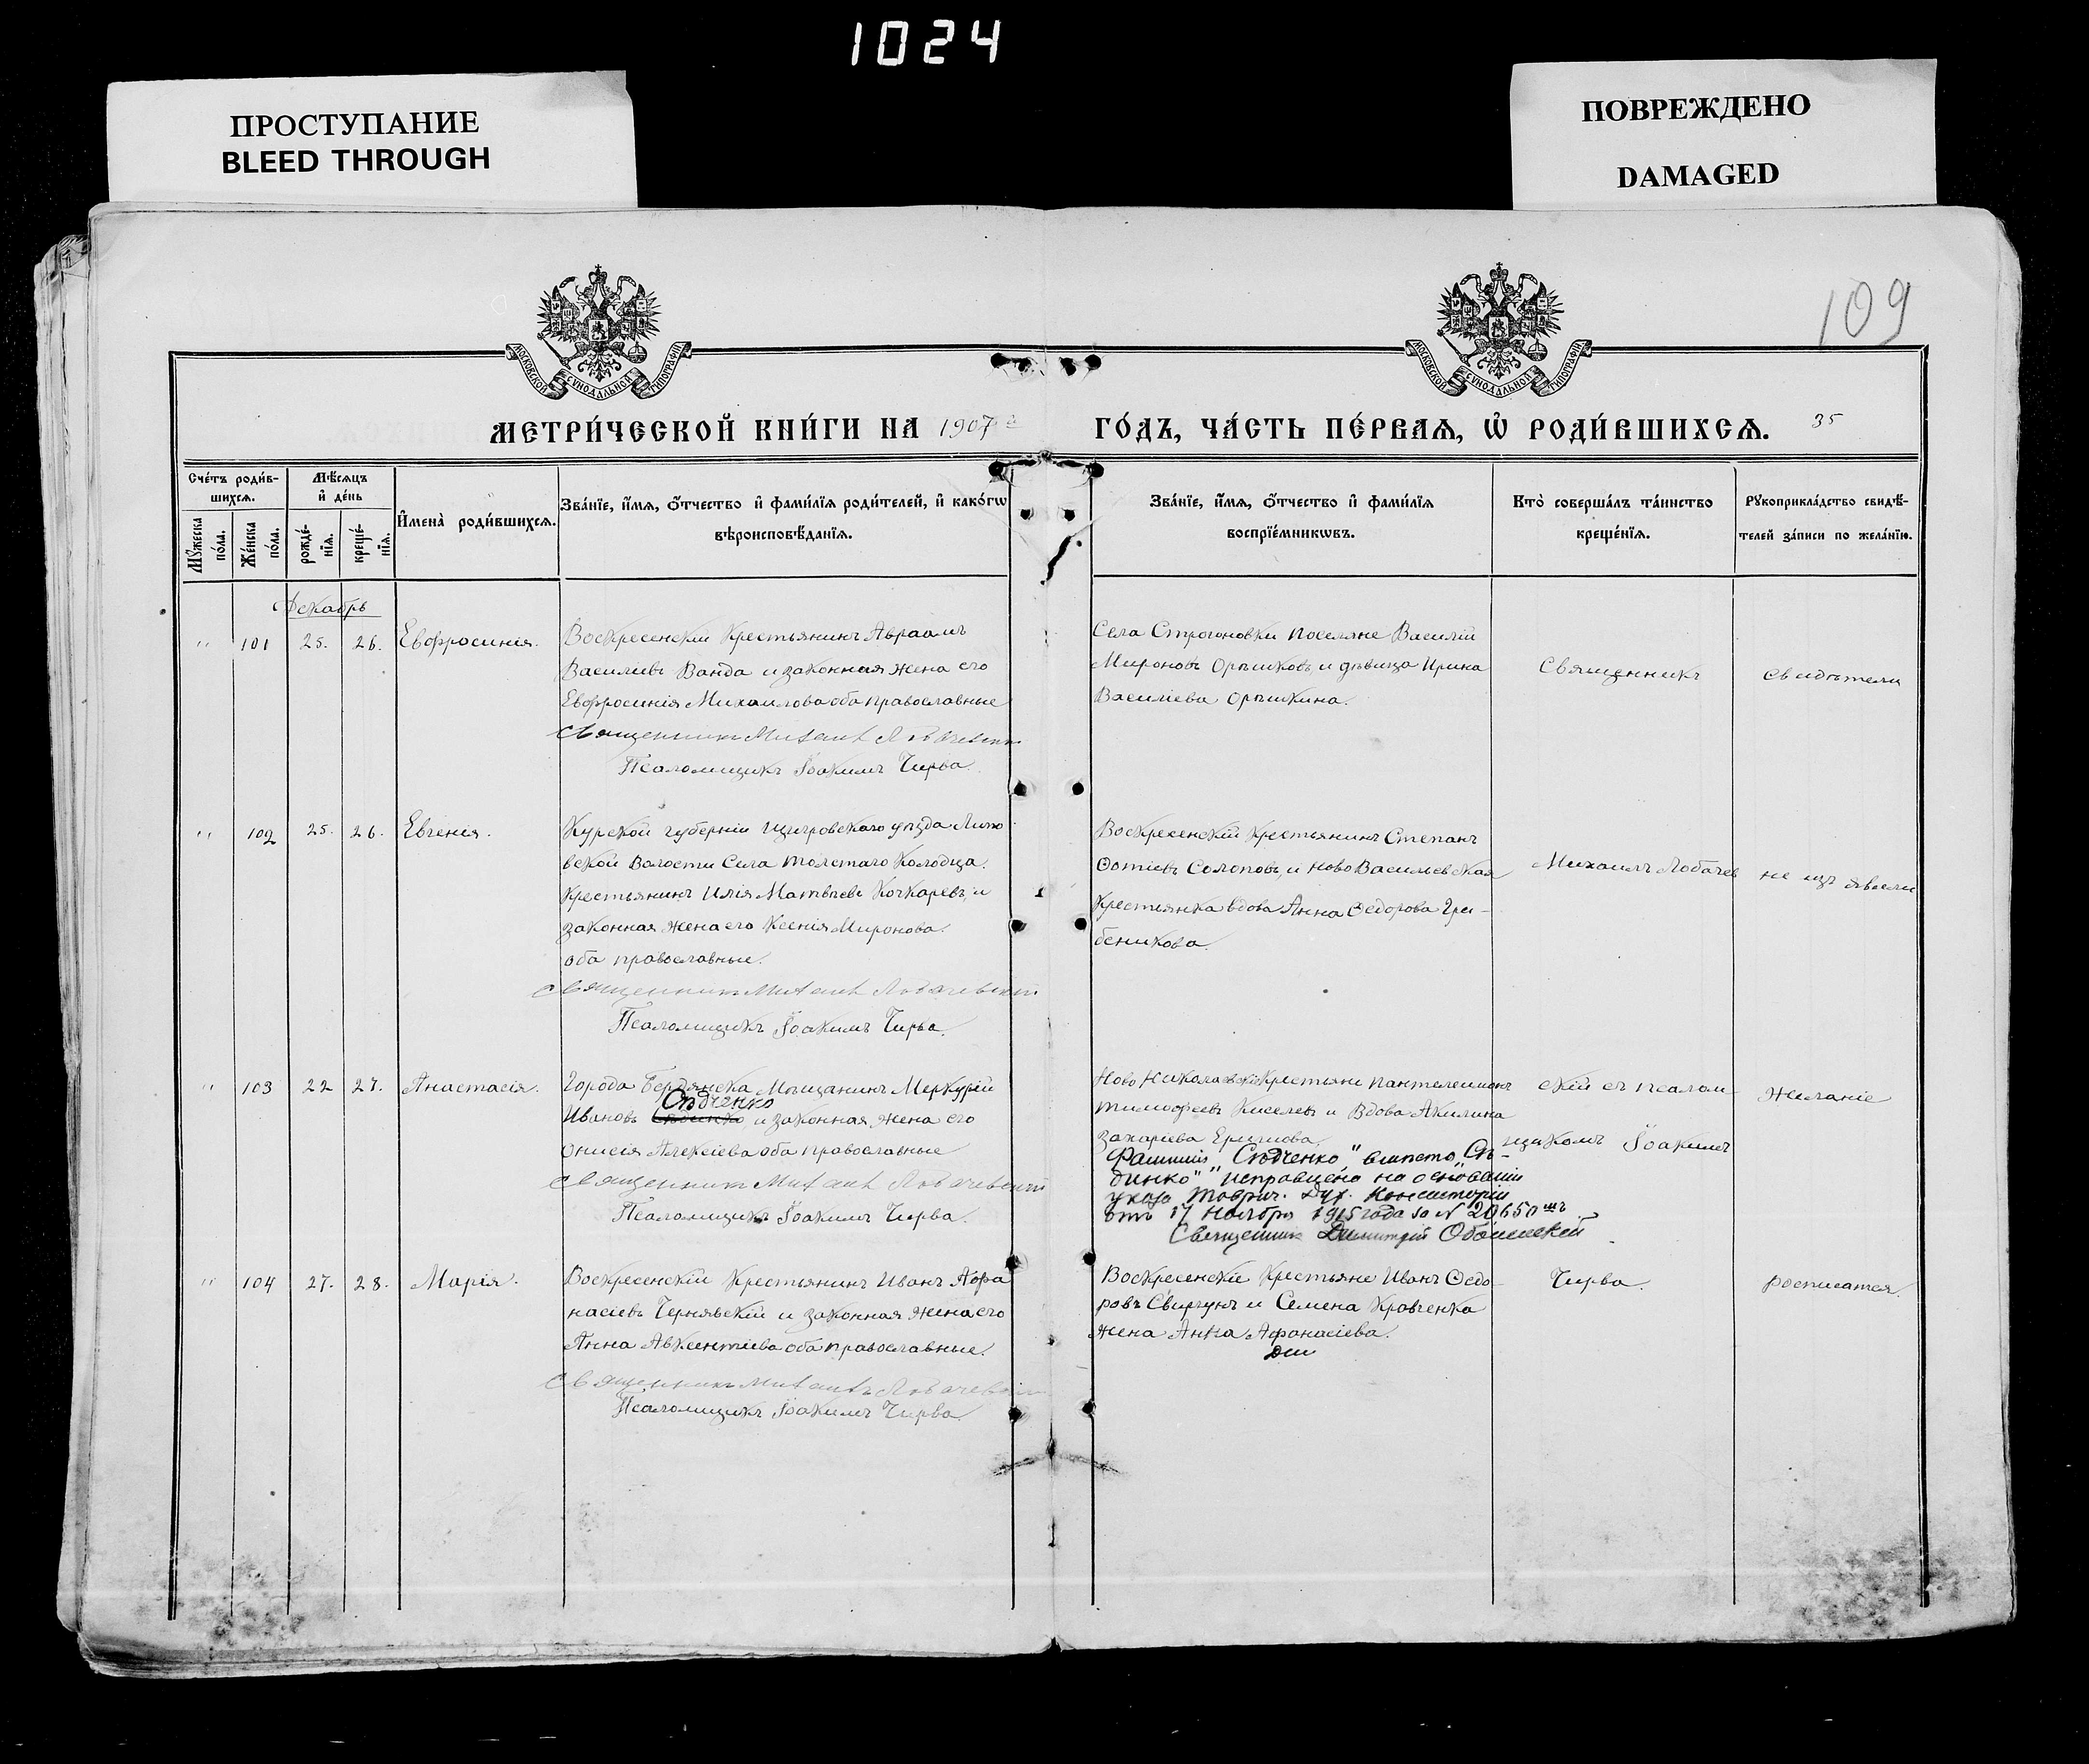 1024
ПРОСТУПАНИЕ
BLEED THROUGH
ПОВРЕЖДЕНО
DAMAGED
109
МОСКОВСКОЙ СѴНОДАЛЬНОЙ ТИПОГРАФІИ
МОСКОВСКОЙ СѴНОДАЛЬНОЙ ТИПОГРАФІИ
МЕТРИ́ЧЕСКОЙ КНИ́ГИ НА 1907 ГО́ДЪ, ЧА́СТЬ ПЕ́РВАѦ, Ѡ҆ РОДИ́ВШИХСѦ. 35
Сче́тъ роди́в-
шихсѧ.
Мꙋ́жеска по́ла.
Же́нска по́ла.
Мѣ́сѧцъ
и҆ де́нь
рожде́-
нїѧ.
креще́-
нїѧ.
И҆мена̀ роди́вшихсѧ.
Зва́нїе, и҆́мѧ, ѻ҆́тчество и҆ фами́лїѧ роди́телей, и҆ како́гѡ
вѣроисповѣ́данїѧ.
Зва́нїе, и҆́мѧ, ѻ҆́тчество и҆ фами́лїѧ
воспрїе́мникѡвъ.
Кто̀ соверша́лъ та́инство
креще́нїѧ.
Рꙋкоприкла́дство свидѣ́-
телей за́писи по жела́нїю.
Декабрь
" 101 25. 26. Евфросинія.
Воскресенскій Крестьянинъ Авраамъ
Василіевъ Ванда и законная жена его
Евфросинія Михаилова оба православные
Священникъ Михаилъ Лобачевскій
Псаломщикъ Іоакимъ Чирва.
Села Строгоновки поселяне Василій
Мироновъ Орѣшковъ, и дѣвица Ирина
Василіева Орѣшкина.
Священникъ
свидѣтели
" 102 25. 26. Евгенія.
Курской губерніи Щигровскаго уѣзда Липо
вской Волости Села Толстаго Колодца.
Крестьянинъ Илія Матвѣевъ Кочкаревъ, и
законная жена его Ксенія Миронова.
оба православные.
Священникъ Михаилъ Лобачевскій
Псаломщикъ Іоакимъ Чирва.
Воскресенскій Крестьянинъ Степанъ
Ѳотіевъ Солоповъ, и Ново Васильевская
Крестьянка вдова Анна Ѳедорова Гре-
беникова.
Михаилъ Лобачев
не изъявили
" 103 22 27. Анастасія.
Города Бердянска Мѣщанинъ Меркурій
Сѣдченко
Ивановъ Сѣдинко и законная жена его
Онисія Алексіева оба православные
Священникъ Михаилъ Лобачевскій
Псаломщикъ Іоакимъ Чирва.
Ново Николаевскіе Крестьяне Пантелеимонъ
Тимофеевъ Киселевъ и Вдова Акилина
Захаріева
Фамилія „Сѣдченко" вмѣсто „Сѣ-
динко" исправлена на основаніи
указа Таврич. Дух. Консисторіи
отъ 17 Ноября 1915 года за № 20650мъ.
Священникъ Димитрій
скій съ псалом
щикомъ Іоакимъ
желаніе
" 104 27. 28. Марія.
Воскресенскій Крестьянинъ Иванъ Афа
насіевъ Чернявскій и законная жена его
Анна Авксентіева оба православные.
Священникъ Михаилъ Лобачевскій
Псаломщикъ Іоакимъ Чирва.
Воскресенскіе Крестьяне Иванъ Ѳедо-
ровъ Свиргунъ и Семена Кравченка
жена Анна Афанасіева.
Чирва.
росписатся.